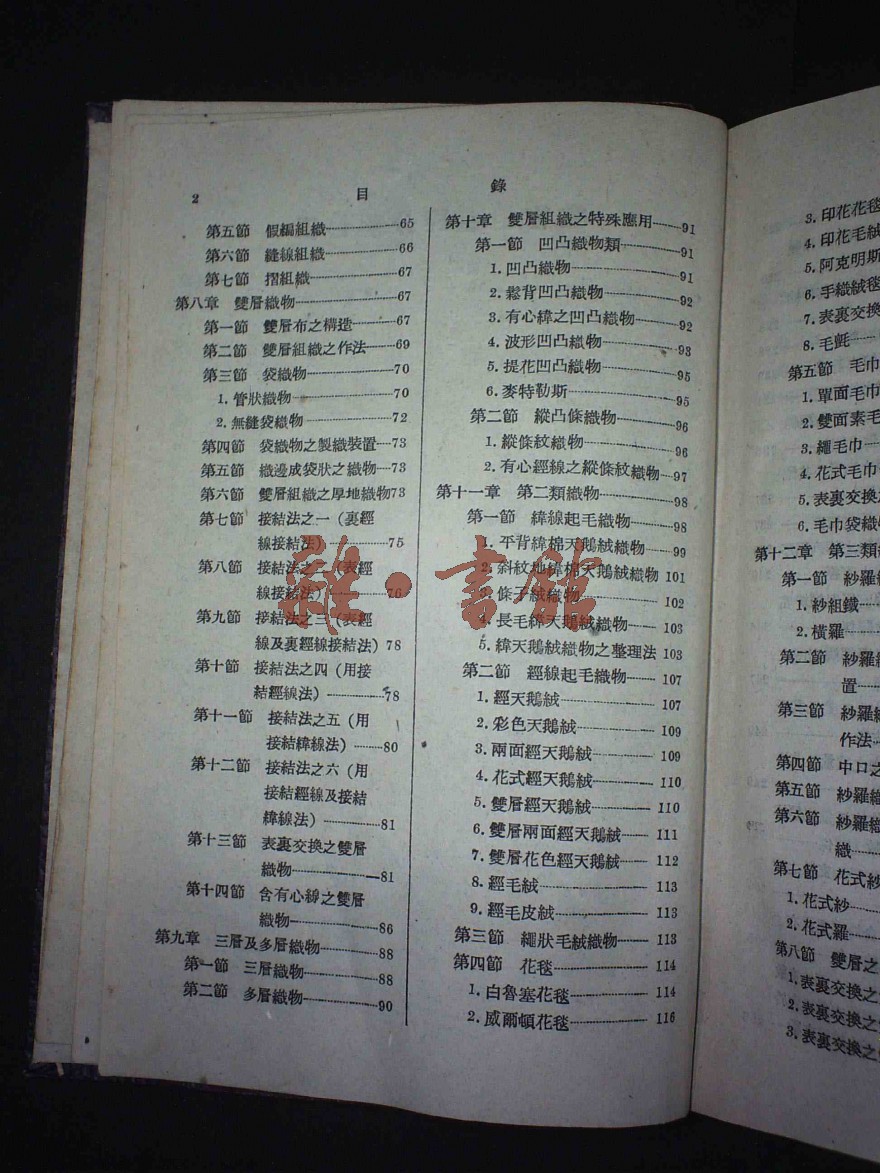 2 目 錄
第五節 假編組織 65
第六節 縫線組織 66
第七節 摺組織 67
第八章 雙層織物 67
第一節 雙層布之構造 67
第二節 雙層組織之作法 69
第三節 袋織物 70
1. 管狀織物 70
2. 無縫袋織物 72
第四節 袋織物之製織裝置 73
第五節 織邊成袋狀之織物 73
第六節 雙層組織之厚地織物73
第七節 接結法之一 (裏經
線接結法) 75
第八節 接結法之二 (表經
線接結法) 76
第九節 接結法之三 (表經
線及裏經線接結法) 78
第十節 接結法之四 (用接
結經線法) 78
第十一節 接結法之五 (用
接結緯線法) 80
第十二節 接結法之六 (用
接結經線及接結
緯線法) 81
第十三節 表裏交換之雙層
織物 81
第十四節 含有心線之雙層
織物 86
第九章 三層及多層織物 88
第一節 三層織物 88
第二節 多層織物 90
第十章 雙層組織之特殊應用 91
第一節 凹凸織物類 91
1. 凹凸織物 91
2. 鬆背凹凸織物 92
3. 有心緯之凹凸織物 92
4. 波形凹凸織物 93
5. 提花凹凸織物 95
6. 麥特勒斯 95
第二節 縱凸條織物 96
1. 縱條紋織物 96
2. 有心經線之縱條紋織物 97
第十一章 第二類織物 98
第一節 緯線起毛織物 98
1. 平背緯棉天鵝絨織物 99
2. 斜紋地緯棉天鵝絨織物 101
3. 條子絨織物 102
4. 長毛緯天鵝絨織物 103
5. 緯天鵝絨織物之整理法 103
第二節 經線起毛織物 107
1. 經天鵝絨 107
2. 彩色天鵝絨 109
3. 兩面經天鵝絨 109
4. 花式經天鵝絨 110
5. 雙層經天鵝絨 110
6. 雙層兩面經天鵝絨 111
7. 雙層花色經天鵝絨 112
8. 經毛絨 113
9. 經毛皮絨 113
第三節 繩狀毛絨織物 113
第四節 花毯 114
1. 白魯塞花毯 114
2. 威爾頓花毯 116
3. 印花花毯
4. 印花毛絨
5. 阿克明斯
6. 手織絨毯
7. 表裏交換
8. 毛氈
第五節 毛巾
1. 單面毛巾
2. 雙面素毛
3. 繩毛巾
4. 花式毛巾
5. 表裏交換
6. 毛巾袋織
第十二章 第三類
第一節 紗羅
1. 紗組織
2. 橫羅
第二節 紗羅
置
第三節 紗羅
作法
第四節 中口之
第五節 紗羅
第六節 紗羅
織
第七節 花式紗
1. 花式紗
2. 花式羅
第八節 雙層之
1. 表裏交換之
2. 表裏交換之
3. 表裏交換之
雜·書館